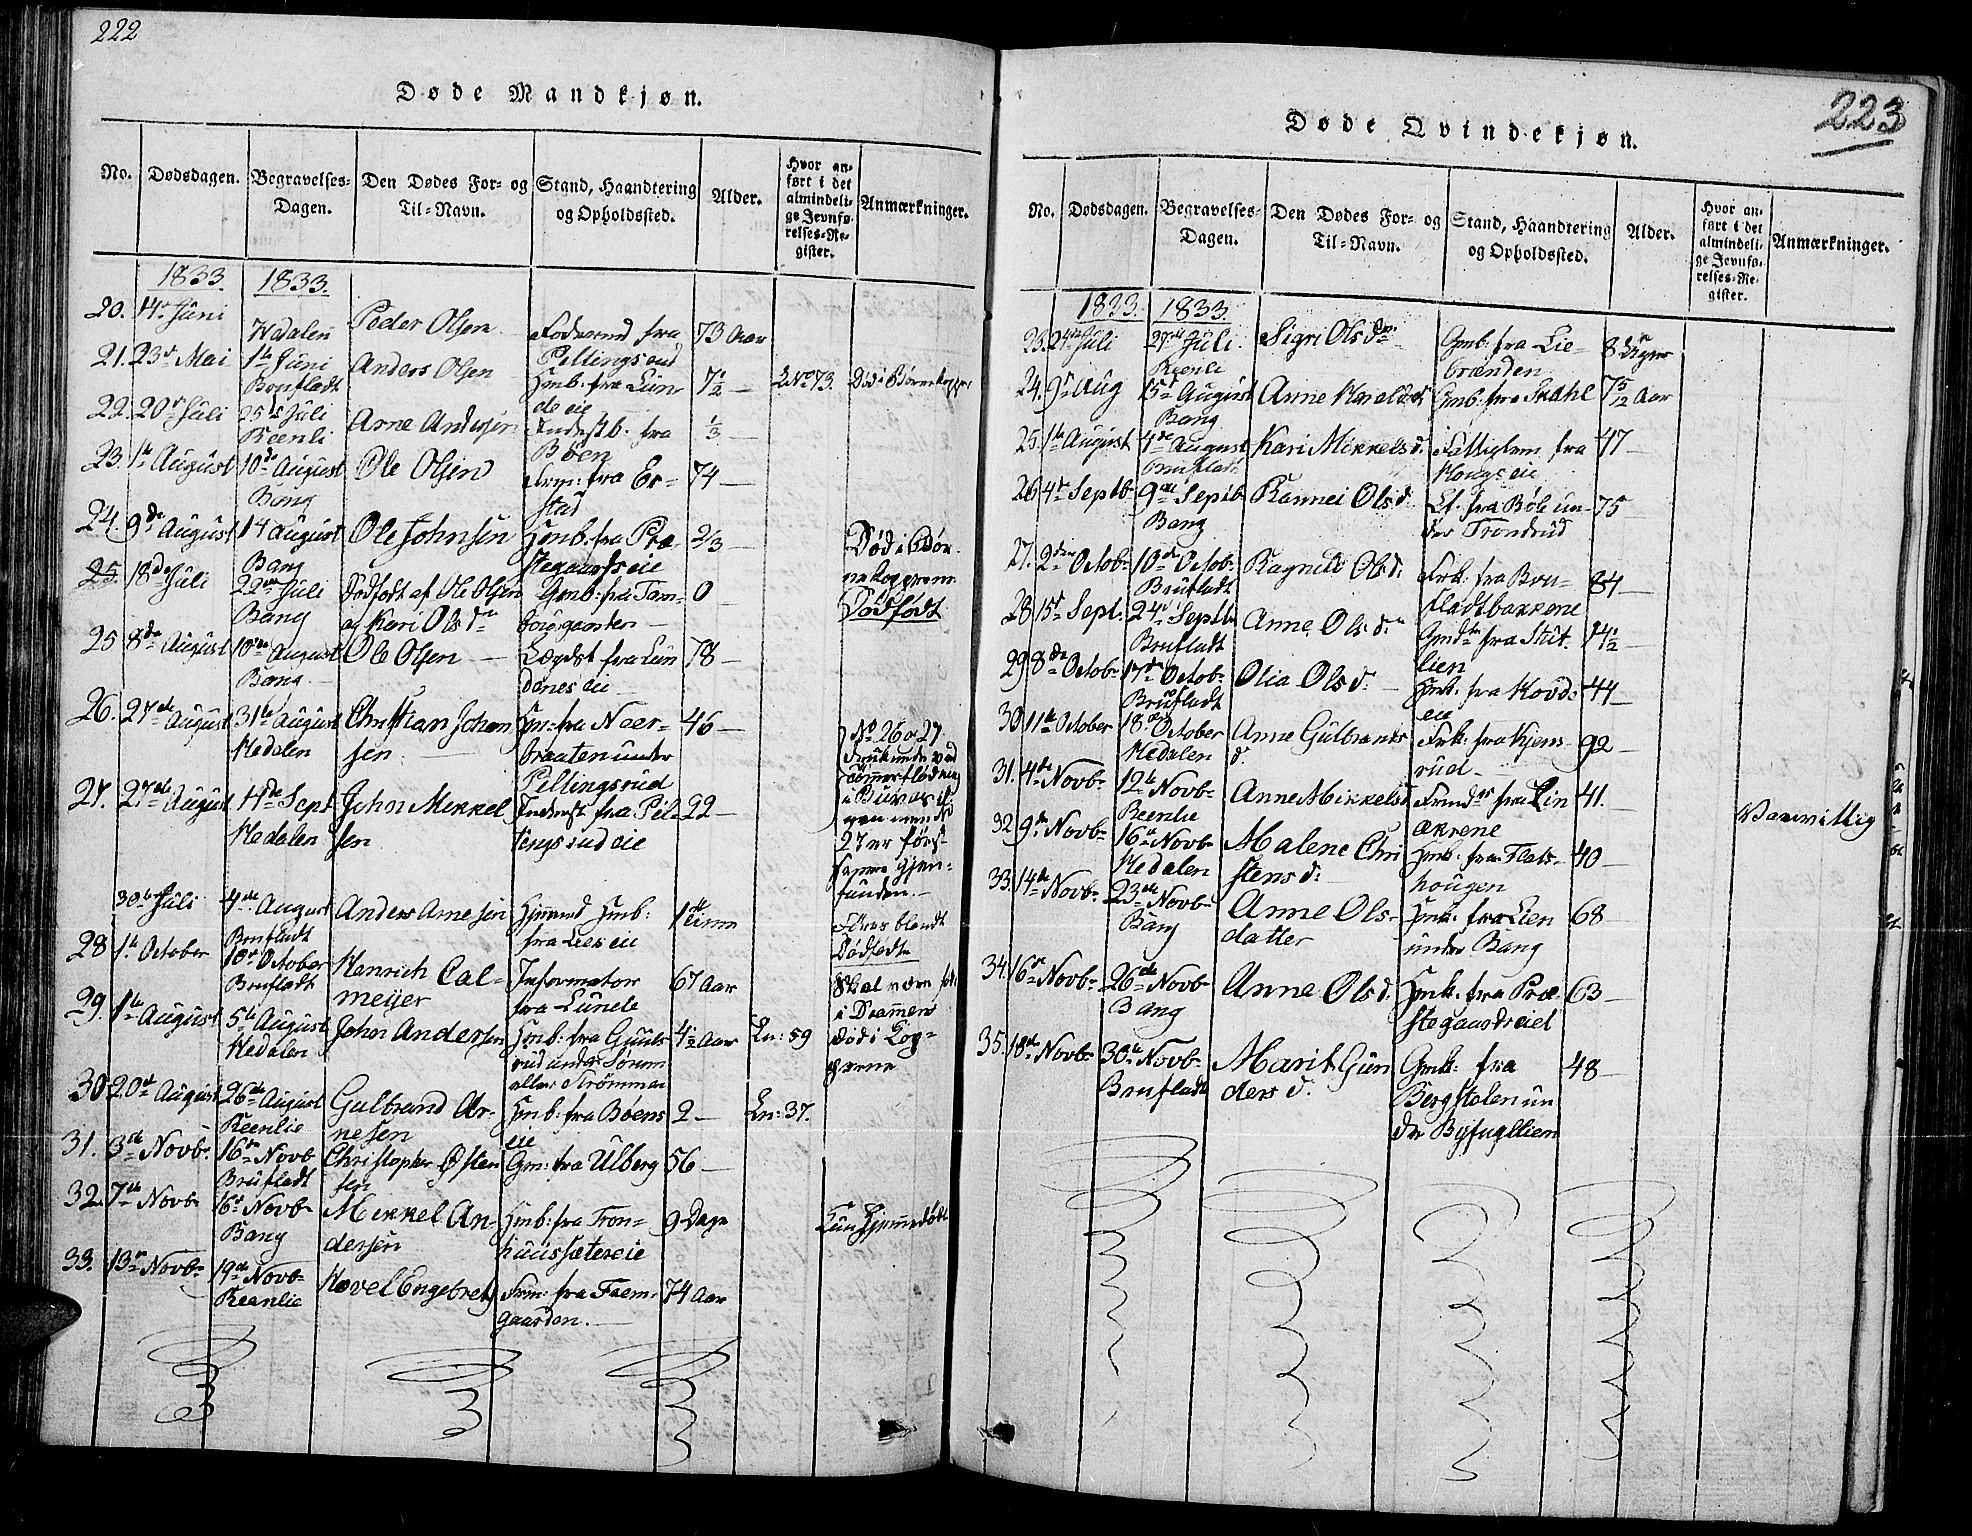 222
Døde Mandkjøn.
No. Dødsdagen. Begravelses-Dagen. Den Dødes For- og Til-Navn. Stand, Haandtering og Opholdssted. Alder. Hvor anført i det almindelige Jevnførelses-Register. Anmærkninger.
1833. 1833.
20. 14de Juni Hedalen Peder Olsen Fodermd fra Pellingsrud 73 Aar
21. 23de Mai 1te Juni Brufladt Anders Olsen Gmb. fra Lunde eie 7½ — L No 73. Død i Børnekopper
22. 20de Juli 25de Juli Reenli Arne Andersen Inderstb. fra Bøen ⅓ —
23. 1te August 10de August Bang Ole Olsen fra Erstad 74 —
24. 9de August 14 August Bang Ole Johnsen Hmb. fra Præstegaards eie 2⅓ — Død i Børnekopperne
25. 18de Juli 22de Juli Bang Dødfødt af Ole Olsen og Kari Olsdr Gmb. fra 0 — Dødfødt
25 8de August 10de August Bang Ole Olsen — Lægdst fra Lundenes eie 78 —
26. 27de August 31te August Hedalen Christian Johansen Hm. fra Neerbraaten under Pellingsrud 46 — No 26 o 27
27. 27de August 4de Sept Hedalen John Mikkelsen Inderst fra Pellingsrud eie 22 — 27 er først gjenfunden. —
30te Juli 4de August Brufladt Anders Arnesen Hmb. fra Lies eie 1 Time Føres blandt Dødfødte
28 1te October 10de October Brufladt Henrich Calmeijer Informator fra Lunde 67 Aar Skal være født i Drammen
29. 1te August 5te August Hedalen John Andersen Hmb. fra under Sørum eller Strømmen 4½ Aar Ln: 59 død i Kopperne
30 20de August 26de August Reenlie Gulbrand Arnesen Hmb. fra Bøens eie 2 — Ln: 37.
31. 3de Novb. 16de Novb Brufladt Christopher Østensen Gm. fra Ulberg 56 —
32. 7de Novb 16de Novb Bang Mikkel Andersen Hmb. fra Tronhuussæter eie 9 Dage Kun Hjemmedøbt
33. 13de Novb. 19de Novb Reenlie Hovel Engebrets fra Faemgaarden. — 74 Aar
223
Døde Qvindekjøn.
No. Dødsdagen. Begravelses-Dagen. Den Dødes For- og Til-Navn. Stand, Haandtering og Opholdssted. Alder. Hvor anført i det almindelige Jevnførelses-Register. Anmærkninger.
1833. 1833.
23. 24de Juli 27de Juli Reenli Sigri Olsdr Gmb. fra Liebrænden 8 Uger
24. 9de Aug 15de August Bang Anne Haraldsd. Gmb. fra Skahl 7 5/12 Aar
25. 1te August 4de August Brufladt Kari Mikkelsd. Fattiglem fra Hougs eie 47 —
26 4de Septb. 9de Septb. Bang Rannei Olsd. Lf. fra Bøle under Trondrud 75
27. 2den Octob. 10de Octob. Brufladt Ragnild Olsd. Frk. fra Brufladtbakkene 84 —
28 15de Sept. 24de Septb. Brufladt Anne Olsd. Gmdtr fra Stutlien 14½ —
29 8de Octob. 17de Octob. Brufladt Olia Olsd. — Hmk. fra Hovds eie 44 —
30 11te October 18de October Hedalen Anne Gulbrands d. Frk. fra Hjemsrud — 92 —
31. 4de Novb. 12te Novb. Reenlie Anne Mikkelsd fra Linakrene 41. — Vanvittig
32 9de Novb. 16de Novb. Hedalen Malene Christensd. Hmk. fra Flatshougen 40 —
33. 14de Novb. 23de Novb. Bang Anne Olsdatter Hmk. fra Lien under Bang 68 —
34. 16de Novb. 26de Novb. Bang Anne Olsd. Hmk. fra Præstegaards eiet 63 —
35. 18de Novb. 30te Novb. Brufladt Marit Gundersd. Gmk. fra Bergstølen under Byfugllien 48 —